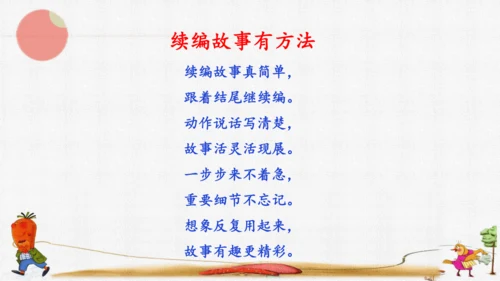 续编故事有方法
续编故事真简单，
跟着结尾继续编。
动作说话写清楚，
故事活灵活现展。
一步步来不着急，
重要细节不忘记。
想象反复用起来，
故事有趣更精彩。